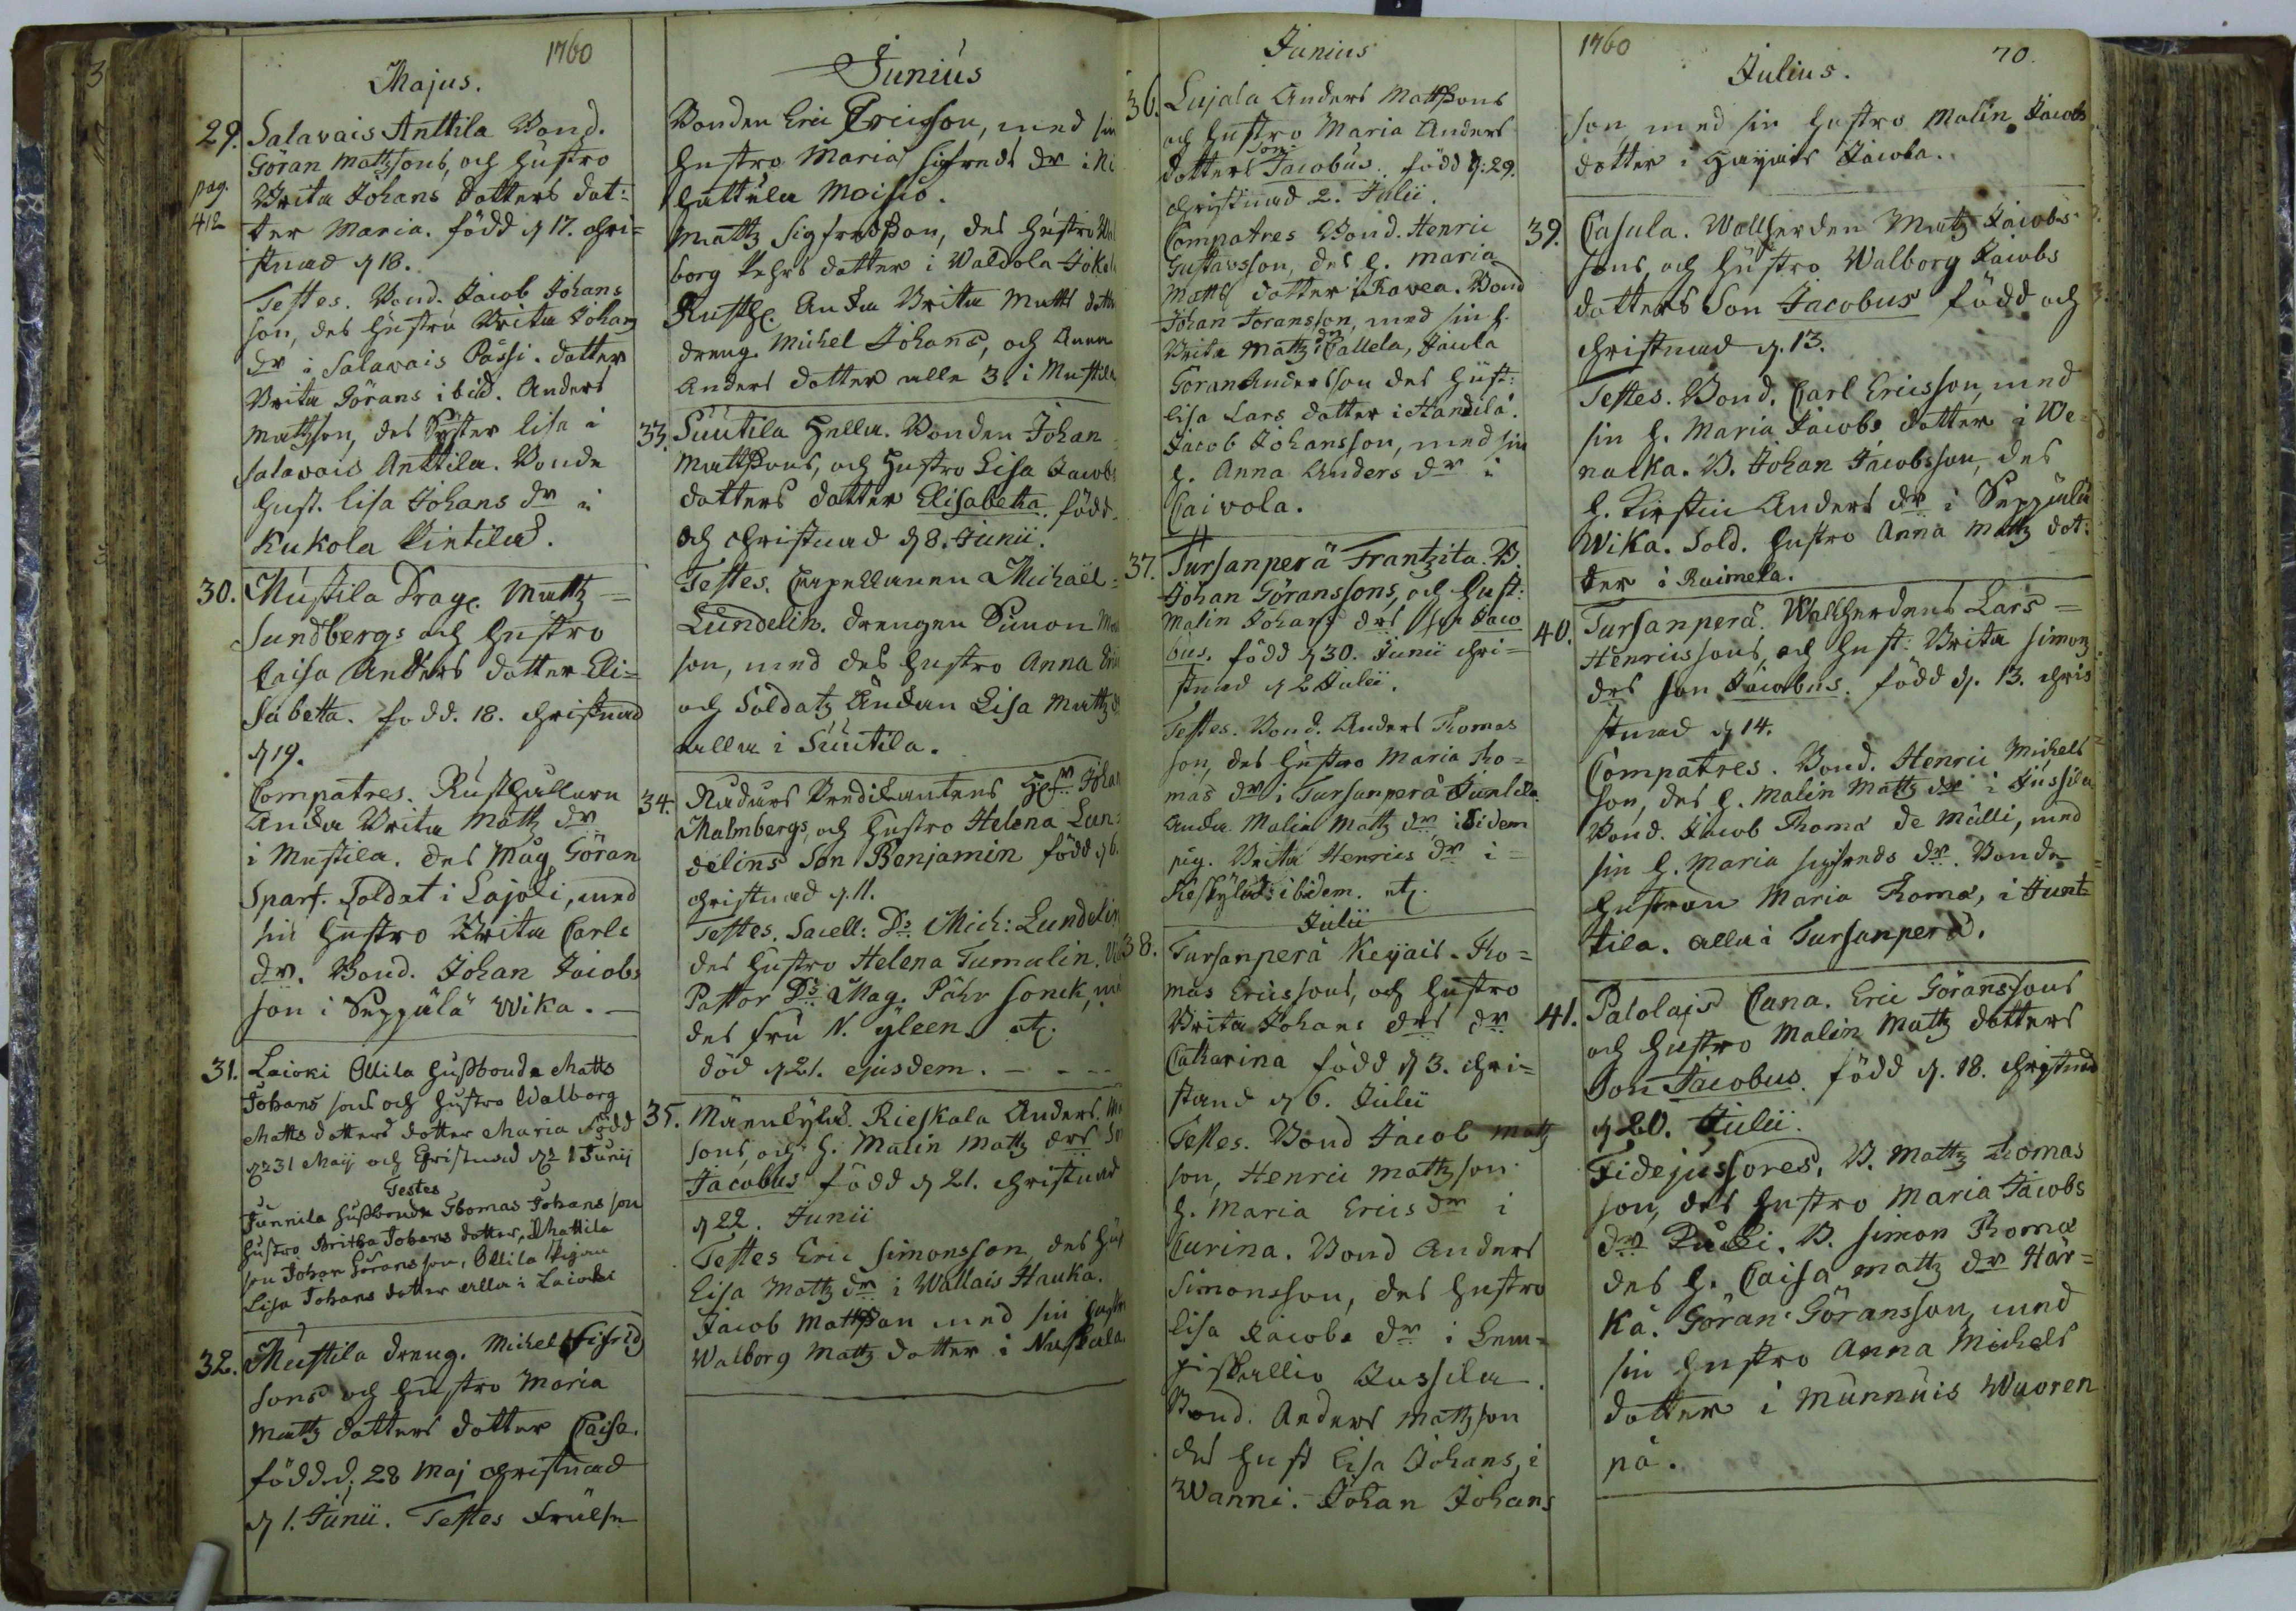 1760
Majus.
29. Salavais Anttila Bond.
Göran Mattssons, och Hustro
pag. 412
Brita Johans Dotters dot=
ter Maria. född d 17. chri=
stnad d 18.
Testes. Bond. Jacob Johans
son, des Hustru Brita Johans
dr i Salavais Påssi. dotter
Brita Görans ibid. Anders
Mattsson, des Syster Lisa i
Salavais Anttila. Bonde
Hust. Lisa Johans dr i
Kukola Pintila.
30. Mustila Drag. Matts
Sundbergs och Hustro
Caisa Anders dotter Eli=
sabetta. född. 18. christnad
d 19.
Compatres. Rusthållare
Anda Brita Matts dr
i Mustila. des Måg Göran
Sparf. Soldat i Lajoki, med
sin Hustro Brita Carls
dr. Bond. Johan Jacobs
son i Seppälä Wika.
31. Laioki Ollila Husbonde Matts
Johans sons och Hustro Walborg
Matts dotters dotter Maria född
d. 31 Maij och Christnad d. 1 Junij
Testes
Junnila Husbonde Thomas Johans son
Hustro Britha Johans dotter, Mattila
son Johan Görans son, Ollila Pigan
Lisa Johans dotter alla i Laioki
32. Mustila dreng. Michel Sigfrids
sons och Hustro Maria
Matts dotters dotter Caisa.
född d. 28 Maj christnad
d 1. Junii. Testes Frälse
Junius
Bonden Eric Ericsson, med sin
Hustro Maria Sigfreds dr i
Hattula Moisio.
Matts Sigfredsson, des Hustro
borg Pehrs dotter i Waldola
Rusth. Anda Brita Matts dotter
dreng Michel Johans, och Anna
Anders dotter alla 3. i Mustila
33. Suutila Hella. Bonden Johan
Mattssons, och Hustro Lisa Jacobs
dotters dotter Elisabetha. född.
och christnad d 8. Junii.
Testes. Capellanen Michaël
Lundelin. drengen Simon
son, med des Hustro Anna
och Soldatz Ändan Lisa Matts
alla i Suutila.
34. Nådårs Predikantens Johan
Malmbergs, och Hustro Helena Lun=
delins Son Benjamin född d 6.
christnad d. 11.
Testes. Sacell: Ds. Mich: Lundelin
des Hustro Helena Tumalin.
Pastor Ds. Mag. Påhr Sonck,
des fru N. Yleen etc.
död d 21. ejusdem.
35. Mäenkylä. Rieskala Anders
sons, och H. Malin Matts drs
Jacobus född d 21. christnad
d 22. Junii
Testes Eric Simonsson, des
Lisa Matts dr i Wallais Hauka.
Jacob Mattsson med sin
Walborg Matts dotter i Naskala
Junius
36. Lujala Anders Mattssons
och Hustro Maria Anders
dotters son Jacobus. född d: 29.
christnad 2. Julii.
Compatres Bond. Henric
Gustavsson, des h. Maria
Matts dotter i Kavea. Bond
Johan Joransson, med sin h.
Brita Matts dr Pallela, Jacola
Göran Andersson des Hust:
Lisa Lars dotter i Handila.
Jacob Johansson, med sin
h. Anna Anders dr i
Caivola.
37. Tursanperä Frantzila. B.
Johan Göranssons, och Hust:
Malin Johans drs son Jaco
bus. född d 30. Junii chri=
stnad d 2 Julii.
Testes. Bond. Anders Thomas
son, des Hustro Maria Tho=
mas dr i Tursanperä Juntila.
Anda Malin Matts dr ibidem
pig. Brita Henrics dr i
Keskylä ibidem. etc.
Julii
38. Tursanperä Keyais. Tho=
mas Ericssons, och Hustro
Brita Johans drs dr
Catharina född d 3. chri=
stnad d 6. Julii
Testes. Bond Jacob Matts
son, Henric Mattsson
h. Maria Erics dr i
Curina. Bond Anders
Simonsson, des Hustro
Lisa Jacobs dr i Lem=
piskallio Jussila.
Bond. Anders Mattsson
des Hust Lisa Johans, i
Wanni. Johan Johans
1760
70.
Julius.
son med sin Hustro Malin Jacobs
dotter i Hayais Jacola.
39. Casula. Wallherden Matts Jacobs
sons, och Hustro Walborg Jacobs
dotters Son Jacobus född och
christnad d. 13.
Testes. Bond. Carl Ericsson, med
sin h. Maria Jacobs dotter i We=
nalka. B. Johan Jacobsson, des
h. Kirstin Anders dr i Seppälä
Wika. Sold. Hustro Anna Matts dot:
ter i Raimela.
40. Tursanperä. Wallherdens Lars
Henricssons, och Hust: Brita Simons
drs son Jacobus. född d. 13. chris
stnad d 14.
Compatres. Bond. Henric Michels
son, des h. Malin Matts dr i Jussila
Bond. Jacob Thoma de Mälli, med
sin h. Maria Sigfreds dr. Bonde
Hustron Maria Thoma, i Junt=
tila. alla i Tursanperä.
41. Palolais Cana. Eric Göranssons
och Hustro Malin Matts dotters
Son Jacobus. född d. 18. christnad
d 20. Julii.
Fidejussores. B. Matts Thomas
son, des Hustro Maria Jacobs
dr B. Simon Thoma
des h. Caisa Matts dr Här=
kä. Göran Göransson, med
sin Hustro Anna Michels
dotter i Munnuis Wuoren
pä.